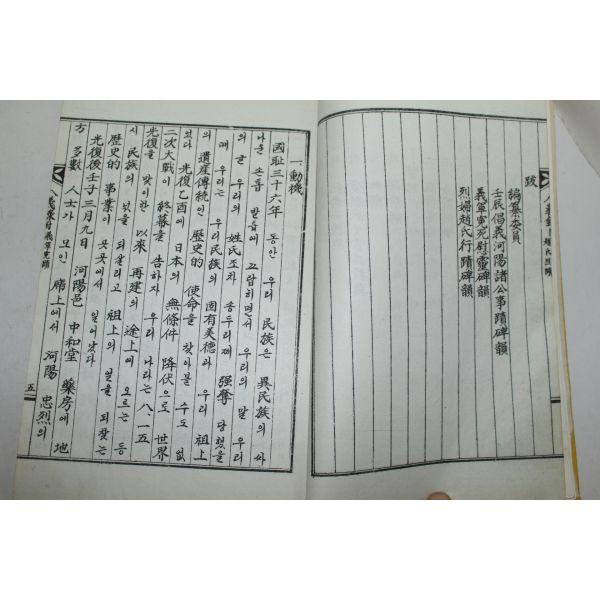 跋
編纂委員
壬辰倡義河陽諸公事蹟碑韻
義軍寃死慰靈碑韻
烈婦趙氏行蹟碑韻
一、動機
國耻三十六年 동안 우리 民族은 異民族의 싸
나운 손톱 발톱에 짓밟히면서 우리의 말 우리
의 글 우리의 姓氏조차 송두리째 强奪 당했을
때 우리는 우리民族의 固有美德과 우리 祖上
의 遺産傳統인 歷史的 使命을 찾아볼 수도 없
었다 光復乙酉에 日本의 無條件 降伏으로 世界
二次大戰이 終幕을 告하자 우리 나라는 八·一五
光復을 맞이한 以來 再建의 途上에 오르는 동
시 民族의 넋을 되살리고 祖上의 얼을 되찾는
歷史的 事業이 곳곳에서 일어났다
光復後壬子三月九日 河陽邑 中和堂 藥房에 地
方 多數 人士가 모인 席上에서 河陽 忠烈의
五